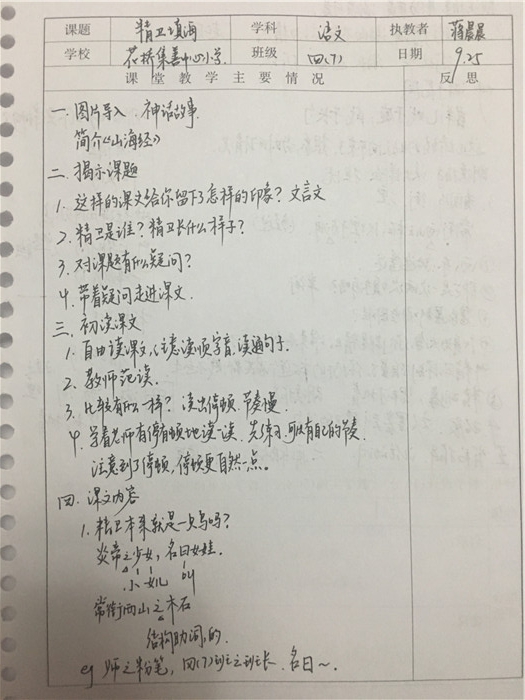 课题 精卫填海 学科 语文 执教者 蒋晨晨
学校 花桥集善中心小学 班级 四(7) 日期 9.25
课堂教学主要情况 反思
一.图片导入.神话故事.
简介《山海经》
二.揭示课题
1.这样的课文给你留下了怎样的印象?文言文
2.精卫是谁?精卫长什么样子?
3.对课题有什么疑问?
4.带着疑问走进课文.
三.初读课文
1.自由读课文,注意读顺字音,读通句子.
2.教师范读.
3.比较有什么不一样?读出停顿.节奏慢.
4.学着老师有停有顿地读一读.先练习.可以有自己的节奏.
注意到了停顿,停顿更自然一点。
四.课文内容
1.精卫本来就是一只鸟吗?
炎帝之少女,名曰女娃.
小女儿 叫
常衔西山之木石
结构助词,的.
eg 师之粉笔,四(7)班之班长.名曰~.